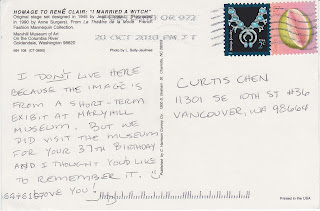 HOMAGE TO RENÉ CLAIR: "I MARRIED A WITCH"
Original stage set designed in 1945 by Jean Cocteau
in 1990 by Anne Surgers. From La Théâtre de la Mode French
Fashion Mannequin Collection.
Maryhill Museum of Art
On the Columbia River
Goldendale, Washington 98620
Photo by L. Sally Jautman
OR 972
20 OCT 2010 PM
I DON'T LIVE HERE
BECAUSE THE IMAGE IS
FROM A SHORT-TERM
EXIBIT AT MARYHILL
MUSEUM. BUT WE
DID VISIT THE MUSEUM
FOR YOUR 37TH BIRTHDAY
AND I THOUGHT YOU'D LIKE
TO REMEMBER IT.
LOVE YOU!
CURTIS CHEN
11301 SE 10TH ST #36
VANCOUVER, WA 98664
Printed in the USA